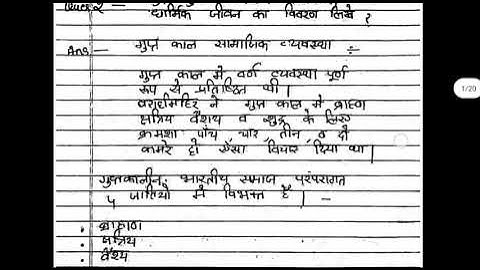 धार्मिक जीवन का विवरण लिखे ?
Ans — गुप्त काल सामाजिक व्यवस्था ÷
गुप्त काल में वर्ण व्यवस्था पूर्ण
रूप से प्रतिष्ठित थी।
वराहमिहिर ने गुप्त काल में ब्राह्मण
क्षत्रिय वैशय व शुद्र के लिए
क्रमशः पाँच चार, तीन व दो
कमरे हो ऐसा विचार दिया था।
गुप्तकालीन भारतीय समाज परंपरागत
जातियो में विभक्त है। -
• ब्राह्मण
• क्षत्रिय
• वैश्य
1/20